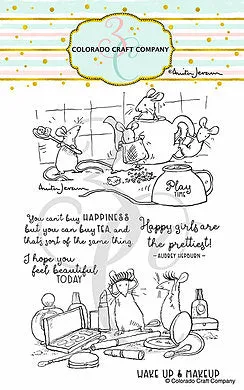 COLORADO CRAFT COMPANY
©Anita Jeram
Play
TIME
Anita Jeram
You can't buy HAPPINESS
but you can buy TEA, and
that's sort of the same thing.
Happy girls are
the prettiest!
- AUDREY HEPBURN -
I hope you
feel beautiful
TODAY
WAKE UP & MAKEUP
© Colorado Craft Company